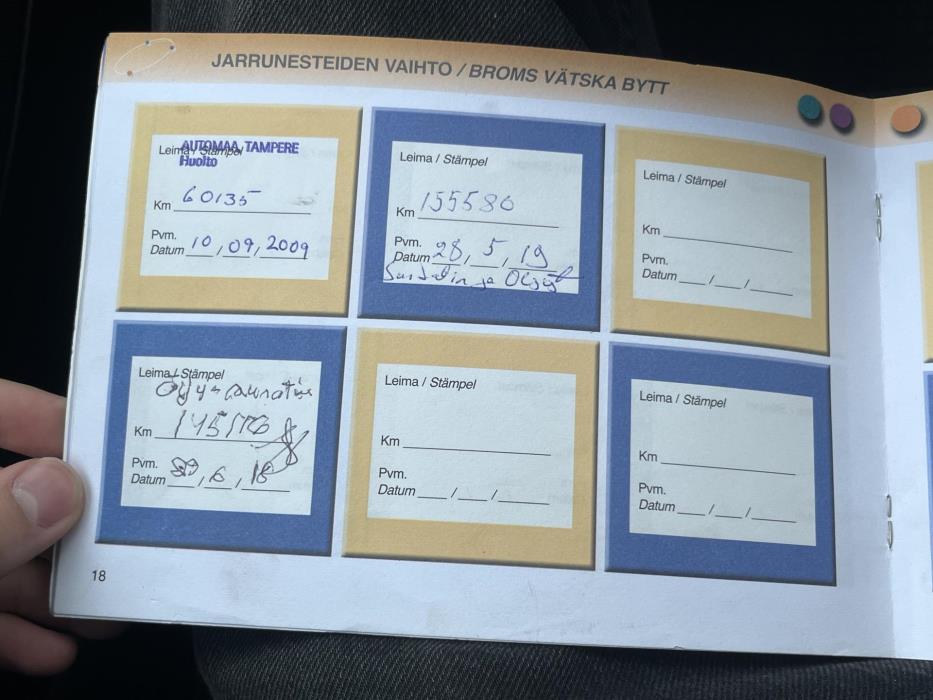 JARRUNESTEIDEN VAIHTO / BROMS VÄTSKA BYTT
AUTOMAA, TAMPERE
Leima / Stämpel
Huolto
Km 60135
Pvm.
Datum 10 / 09 / 2009
Leima / Stämpel
Km 155580
Pvm.
Datum 28 / 5 / 19
ja
Leima / Stämpel
Km
Pvm.
Datum __ / __ / ____
Leima / Stämpel
Km
Pvm.
Datum / 6 / 18
Leima / Stämpel
Km
Pvm.
Datum __ / __ / ____
Leima / Stämpel
Km
Pvm.
Datum __ / __ / ____
18